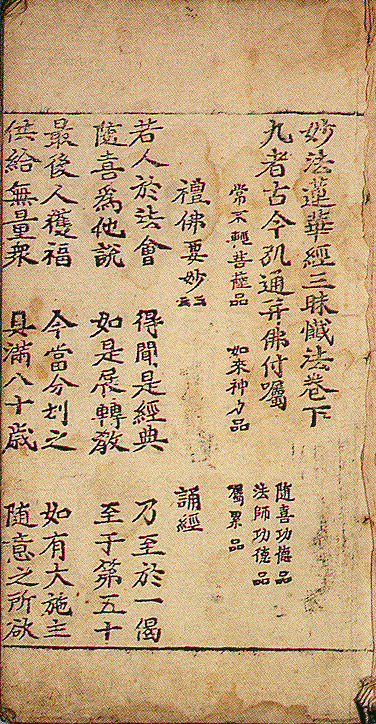 妙法蓮華經三昧懺法卷下
九者古今弘通并佛付囑 隨喜功德品
法師功德品
常不輕菩薩品 如來神力品 囑累品
禮佛要妙云云 誦經
若人於法會 得聞是經典 乃至於一偈
隨喜爲他說 如是展轉教 至于第五十
最後人獲福 今當分別之 如有大施主
供給無量衆 具滿八十歲 隨意之所欲